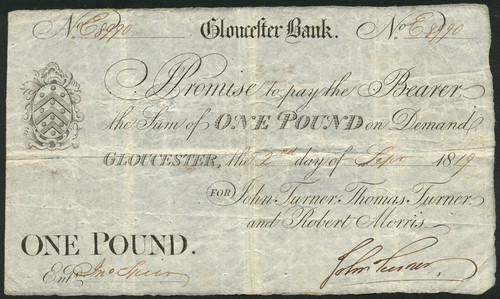 No E8990 Gloucester Bank. No E8990
I Promise to pay the Bearer
the Sum of ONE POUND on Demand
GLOUCESTER, the 2nd day of Sepr 1819
FOR John Turner, Thomas Turner
and Robert Morris.
ONE POUND.
Entd Jno Spier John Turner